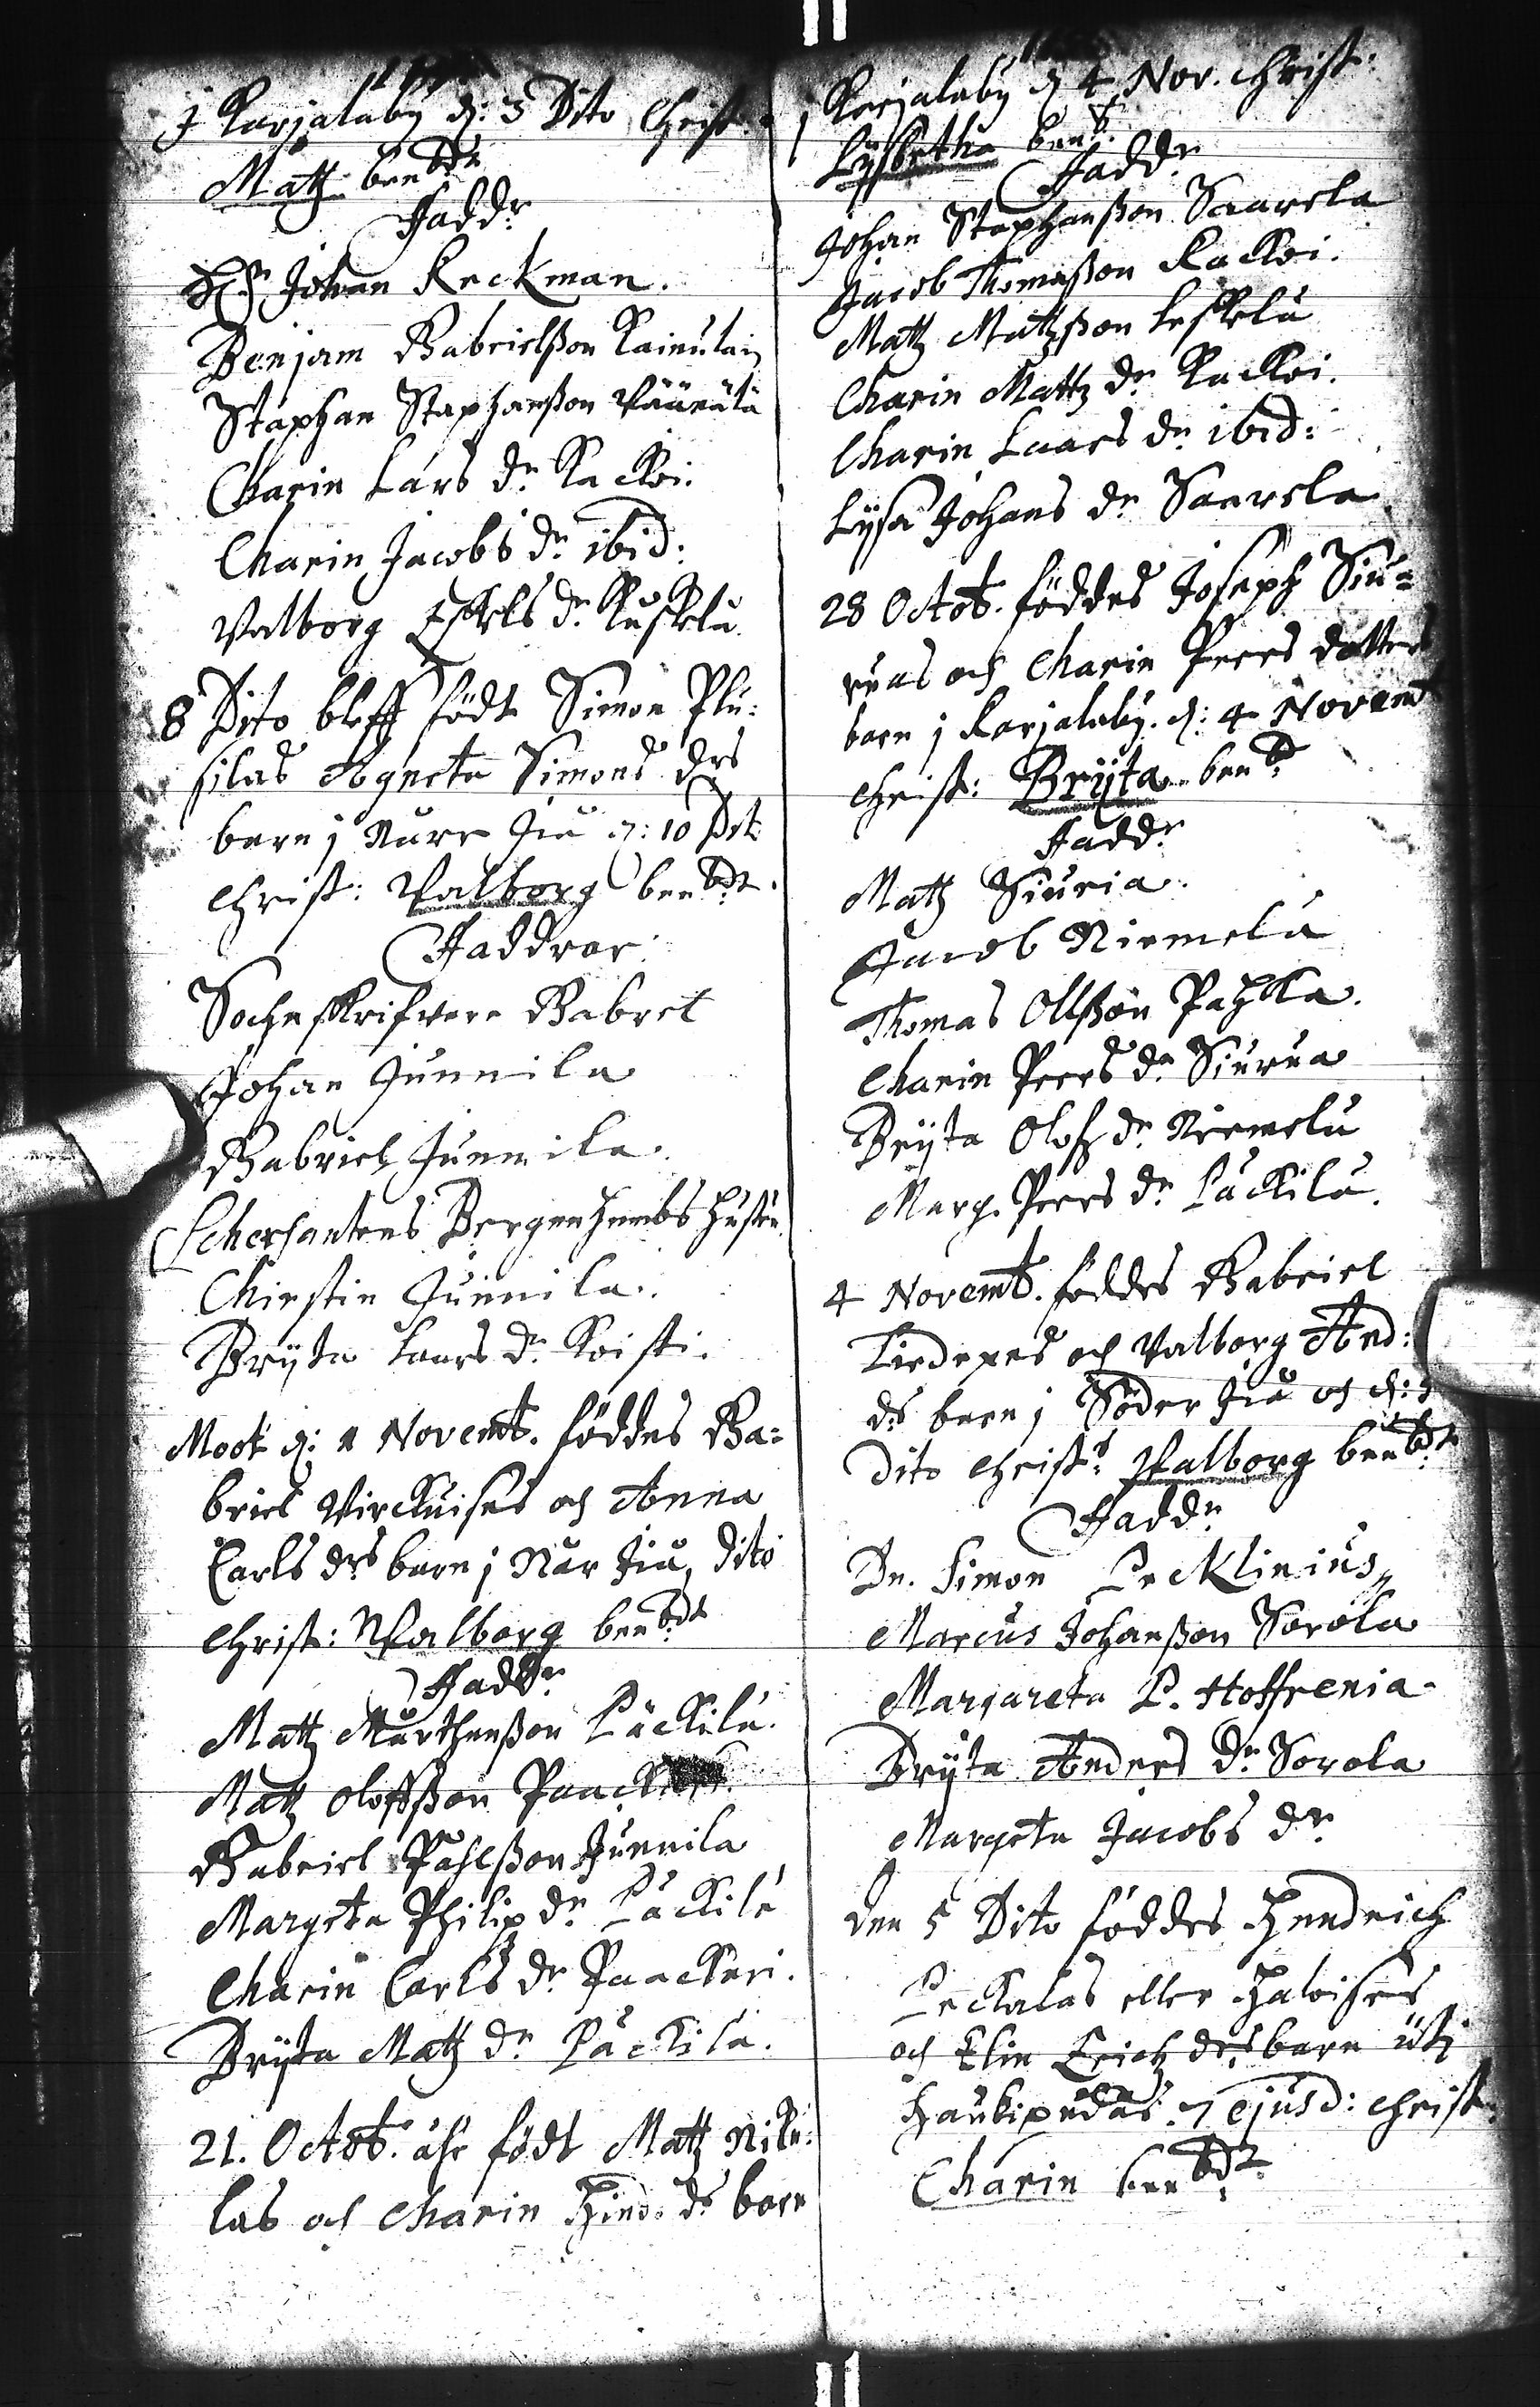 J Karjalaby d: 3 Dito Christ:
Matz benbdt
Faddr
H: Johan Keckman.
Benjam Gabrielßon Kainulai
Staphan Staphanßon Väänälä
Charin Lars dr Kackoi.
Charin Jacobs dr ibid:
Valborg Eskels dr Kuskela
8 Dito bleff födt Simon Plu:
silas Agneta Simons drs
barn j Norr Jiu d: 10 Dit
Christ: Valborg benbdt.
Faddrar:
Sochnskrifvare Gabret
Johan Junnila
Gabriel Junnila.
Scherfantens Bergenhembs hustru
Chirstin Junnila.
Bryta Lars dr Koisti.
Moot d: 1 Novemb. föddes Ga=
briel Virckuises och Anna
Carls drs barn j Nor Jiu, Dito
Christ: Walborg benbdt
Faddr
Matz Mårthenßon Päckilä.
Matz Oloffßon
Gabriel Påhlßon Junnila
Margeta Philip dr Päckilä
Charin Carls dr Paackari.
Bryta Matz dr Päckilä.
21. Octob. ähr födt Matz Niku:
las och Charin Hind. ds barn
j Karjalaby d 4 Nov. Christ:
Lysbetha benb.
Faddr
Johan Staphanßon Saarela
Jacob Thomaßon Kackoi.
Matz Matzßon Leskelä
Charin Matz dr Kackoi.
Charin Laars dr ibid:
Lysa Johans dr Saarela
28 Octob. föddes Joseph Siu=
ruas och Charin Peers dotters
barn j Karjalaby. d: 4 Novemb
Christ: Bryta benb
Faddr
Matz Siuria.
Jacob Niemelä
Thomas Olßon Pahkla.
Charin Peers dr Siurua
Bryta Olofz dr Niemelä
Marg. Peers dr Päckilä.
4 Novemb. föddes Gabriel
Tiedexes och Valborg And:
ds barn j Söder Jiu och d: 5
Dito Christ: Valborg benbdt
Faddr
Dn. Simon Pecklinius
Marcus Johanßon Sorola
Margareta P. Hoffrenia.
Bryta Anders dr Sorola
Margeta Jacobs dr
den 5 Dito föddes Hendrich
Peckalas eller Haloises
och Elin Erichz drs barn uti
Haukipudas. 7 ejusd: Christ.
Charin benbdt